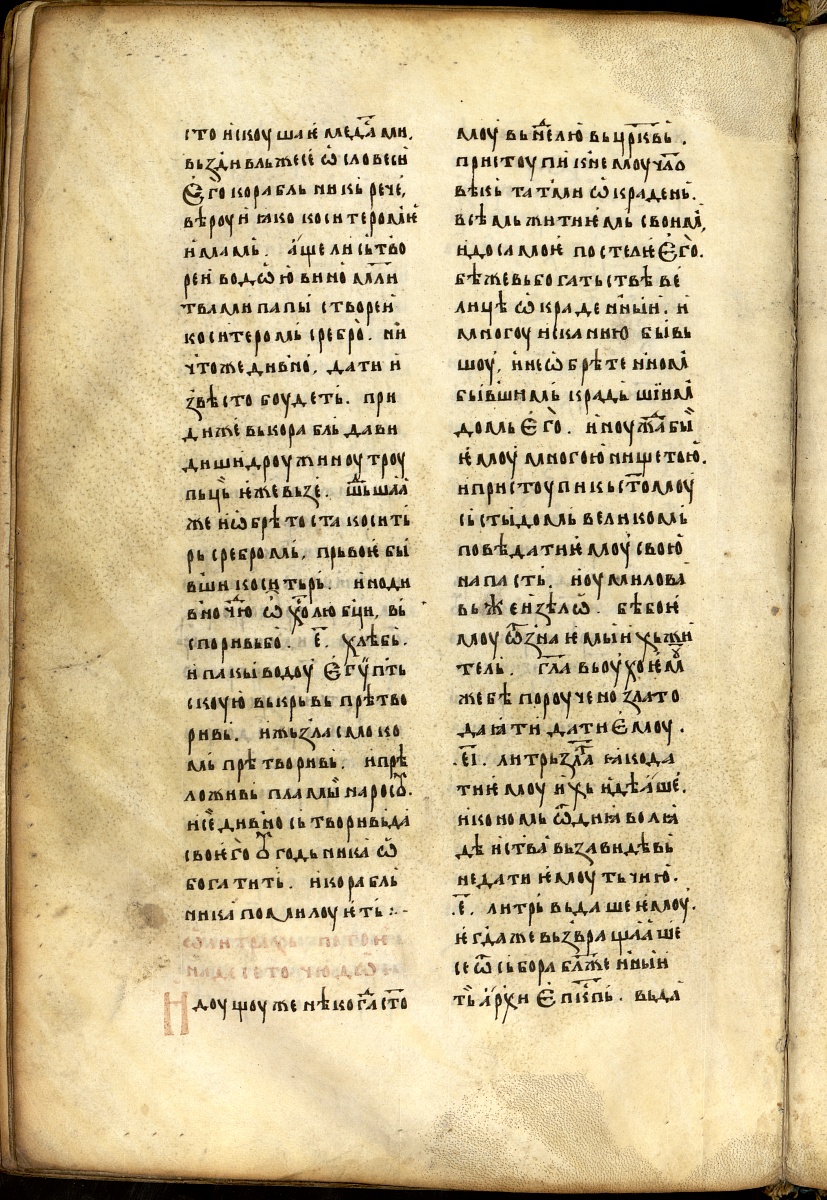 сто искоуша ѥ мед꙯ами.
вьзди вльжесе ѡ словеси
Ѥго корабль никь рече,
вѣроуи ꙗко коситеромьѥ
имамь. аще ли сьтво
реи водѡю вино мл҃и
твами папы створеи
коситеромь сребро. ни
чтоже дивно, дати и
звѣсто боудеть. при
диже вькорабль дави
диши дроужиноу троу
пьць ѥжевьзе. ѿшьш аꙗ
же и ѡбрѣтоста косить
рь сребромь, прьвоѥ бы
вши коситьрь. иноди
вно чю ѡ холюбци, вь
споривьбо. е҃. хлѣбь.
ипакы водоу Ѥгупть
скоую вькрьвь прѣтво
ривь. ижьзла смоко
мь прѣтворивь. ипрѣ
ложивь пламы наросꙋ.
и се дивно сьтворивьда
своѥго ꙋгодьника ѡ
богатить. икорабль
ника помилоуѥть :-
Идоущоу же нѣкогда сто
моу вь нелю вьцр҃квь.
пристоупи кнемоу чл҃о
вѣкь татми ѡкрадень.
всѣмь житиѥмь своим,
идосамоѥ постелѥ Ѥго.
бѣже вьбогатьствѣ ве
лицѣ ѡкраденныи. и
многоу исканию бывь
шоу, и не ѡбрѣтенном
бывшимь крадьшїим
домь Ѥго. и ноужда бы
ѥмоу многою нищетою.
и пристоупи кьст҃омоу
сьстыдомь великомь
повѣдати ѥмоу свою
напасть. и оумилова
вь же и зѣлѡ. бѣбо ѥ
моу ѿзнаѥмыихь жи
тель. гл҃а вьоухо ѥм
же бѣ пороучено злато
даꙗти дати Ѥмоу.
.еі. литрь злта ꙗкода
ти ѥмоу ихь идѣаше.
икономь ѿдиꙗволꙗ
дѣиства вьзавидѣвь
недати ѥмоу тьчию.
.е҃. литрь вьдаше ѥмоу.
ѥгдаже вьзвращааше
се ѿ сьбора бл҃женныи
ть архи Ѥпⷭкпь. вьда